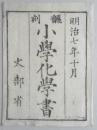 明治七年十月
飜刻
小學化學書
文部省